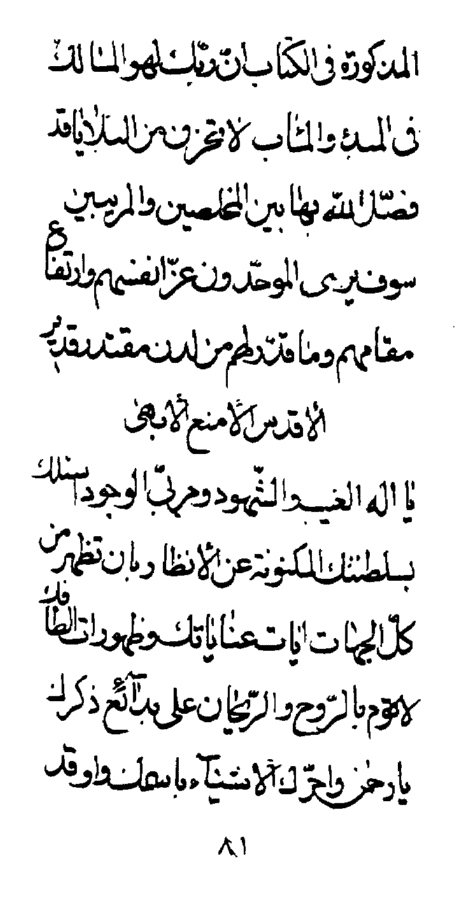 المذكورة فى الكتاب انّ ربّك لهو المالك
فى المبدء و المئاب لا تحزن من البلايا قد
فصّل الله بها بين المخلصين و المريبين
سوف يرى الموحّدون عزّ انفسهم و ارتفاع
مقامهم و ما قدّر لهم من لدن مقتدر قدير
الاقدس الامنع الابهى
يا اله الغيب و الشّهود و مربّى الوجود اسئلك
بسلطنتك المكنونة عن الانظار بان تظهر من
كلّ الجهات ايات عناياتك و ظهورات الطافك
لاقوم بالرّوح و الرّيحان على بدائع ذكرك
يا رحمن و احرّك الاشيآء باسمك و اوقد
٨١